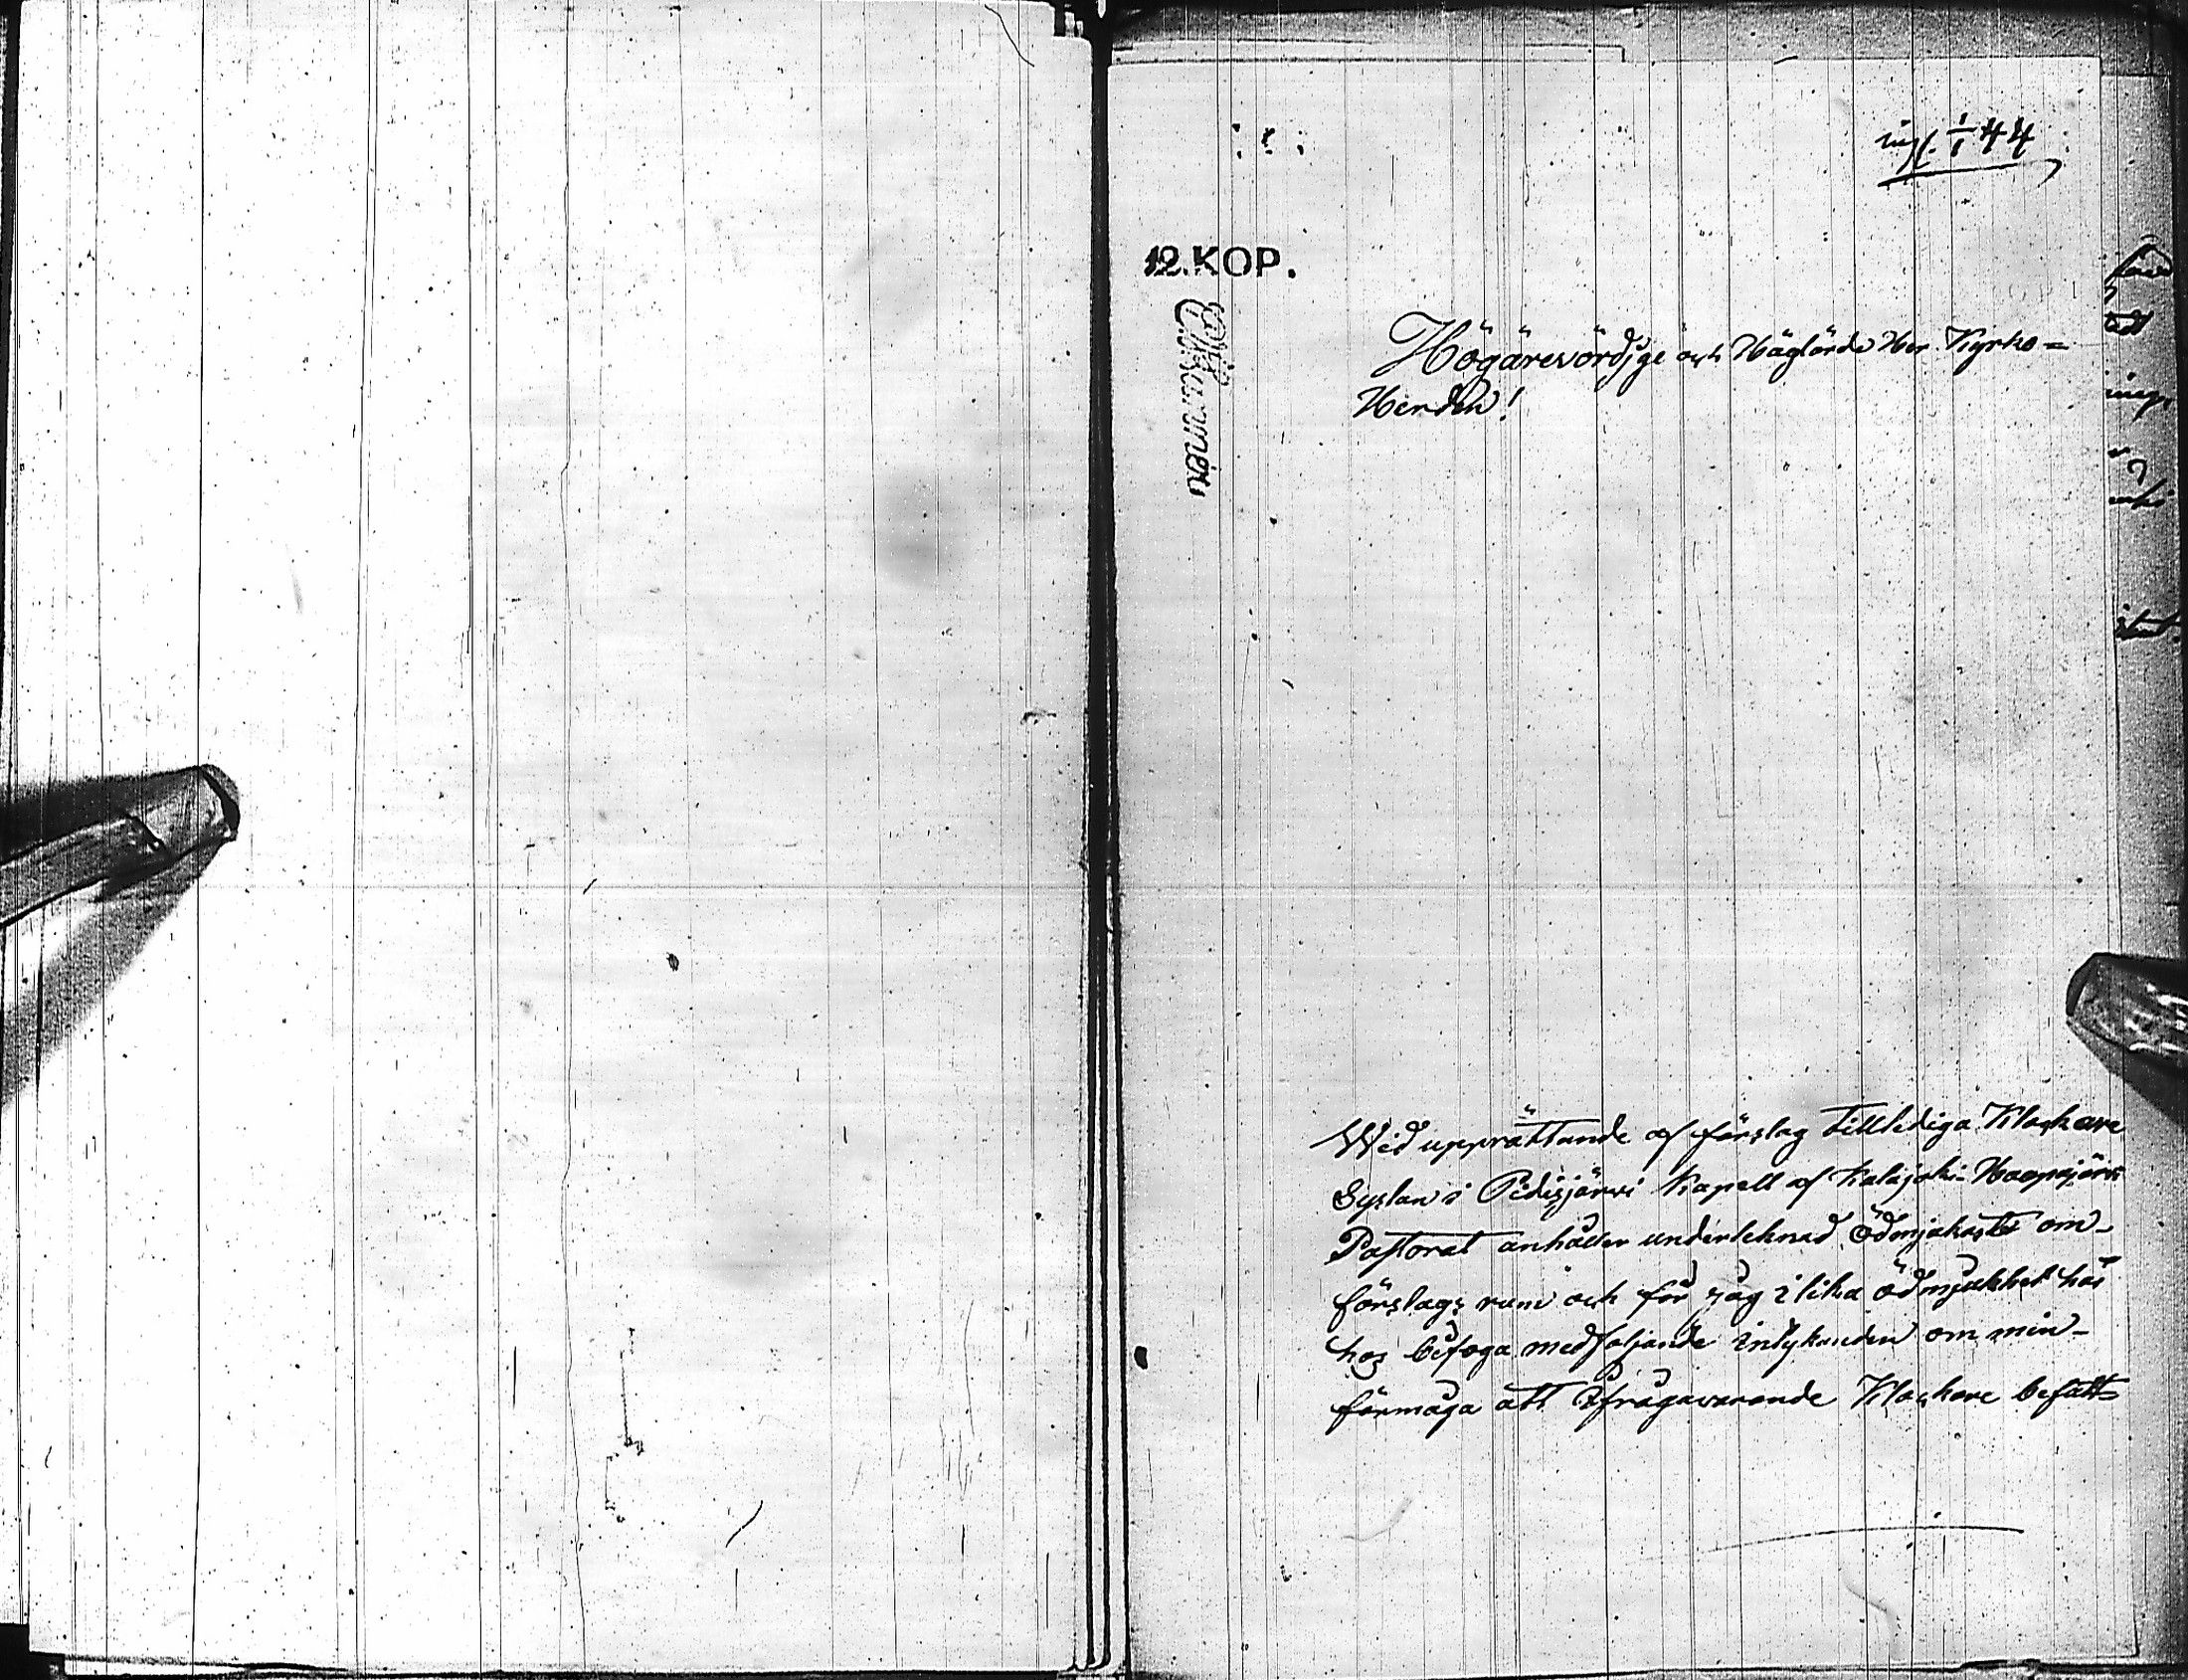 ingl. 1/1 44
12.KOP.
Högärevördige och Höglärde Her Kyrko=
Herden!
Wid upprättande af förslag till lediga Klockare
Syslan i Pidisjärwi Kapell af Kalajoki Haapajärwi
Pastorat anhåller underteknad ödmjukaste om
förslags rum och för jag i lika ödmjukhet här
hos bifoga medfoljande intyganden om min
förmåga att ifrågavarande Klockare befatt=